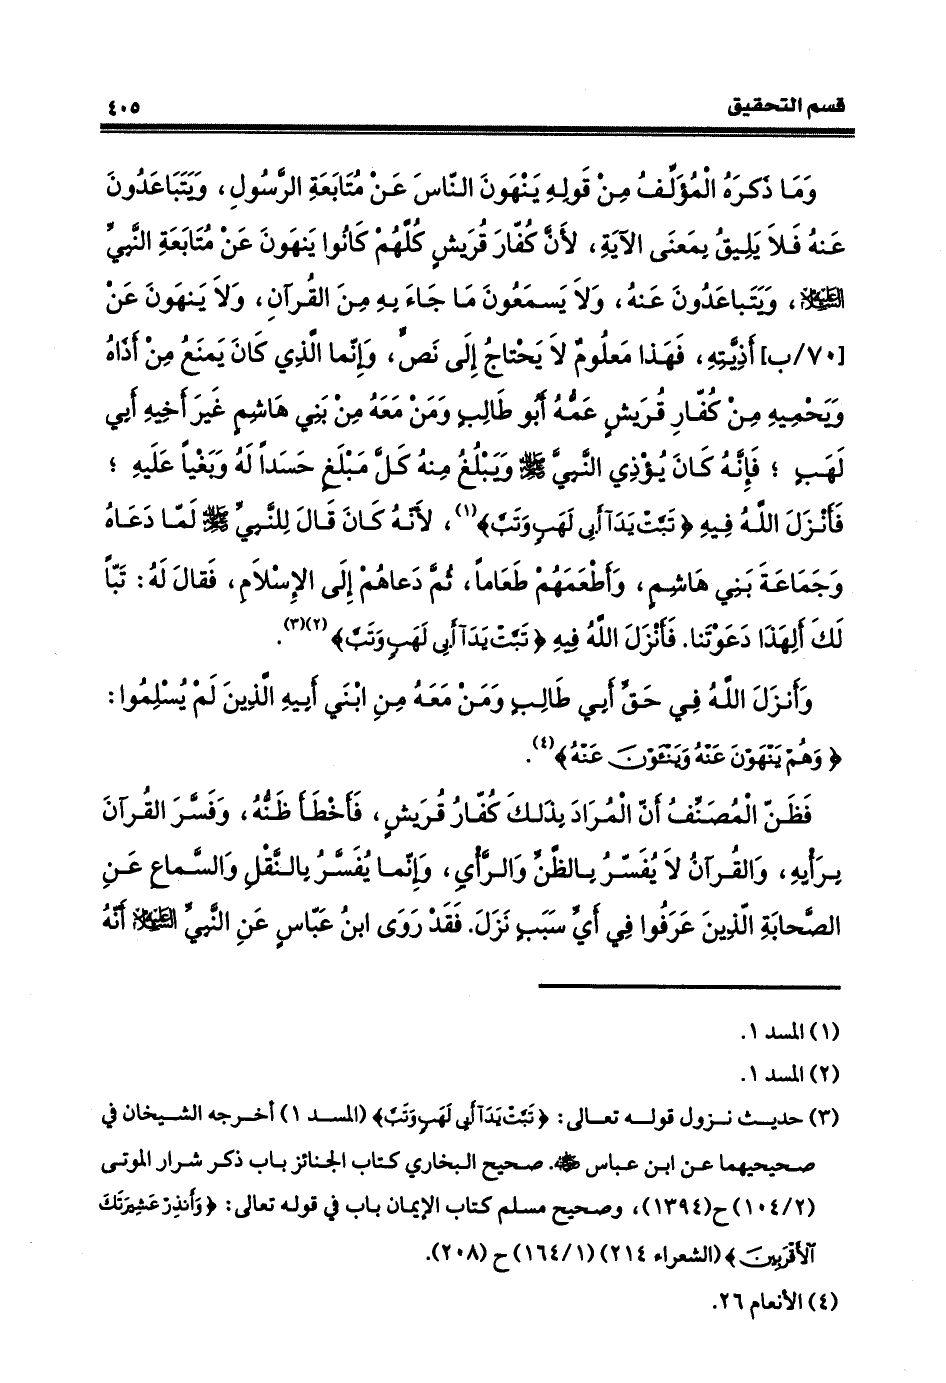 قسم التحقيق ٤٠٥
وَمَا ذَكَرَهُ الْمُؤَلِّفُ مِنْ قَولِهِ يَنْهَونَ النّاسَ عَنْ مُتَابَعَةِ الرَّسُولِ، وَيَتَبَاعَدُونَ
عَنهُ فَلاَ يَلِيقُ بِمَعنَى الآيَةِ، لأَنَّ كُفّارَ قُرَيشٍ كُلَّهُمْ كَانُوا يَنهَونَ عَنْ مُتَابَعَةِ النَّبِيِّ
عليه السلام، وَيَتَباعَدُونَ عَنهُ، وَلاَ يَسمَعُونَ مَا جَاءَ بِهِ مِنَ القُرآنِ، وَلاَ يَنهَونَ عَنْ
[٧٠/ب] أَذِيَّتِهِ، فَهَذا مَعلُومٌ لاَ يَحْتاجُ إِلَى نَصٍّ، وَإِنّما الَّذِي كَانَ يَمنَعُ مِنْ أَذَاهُ
وَيَحْمِيهِ مِنْ كُفّارِ قُرَيشٍ عَمُّهُ أَبُو طَالِبٍ وَمَنْ مَعَهُ مِنْ بَنِي هَاشِمٍ غَيرَ أَخِيهِ أَبِي
لَهَبٍ ؛ فَإِنَّهُ كَانَ يُؤْذِي النَّبِيَّ ﷺ وَيَبْلُغُ مِنهُ كَلَّ مَبْلَغٍ حَسَداً لَهُ وَبَغْياً عَلَيهِ ؛
فَأَنْزَلَ اللَّهُ فِيهِ ﴿تَبَّتْ يَدَآ أَبِى لَهَبٍ وَتَبَّ﴾(١)، لأَنَّهُ كَانَ قَالَ لِلنَّبِيِّ ﷺ لَمّا دَعَاهُ
وَجَمَاعَةَ بَنِي هَاشِمٍ، وَأَطْعَمَهُمْ طَعَاماً، ثُمَّ دَعاهُمْ إِلَى الإِسْلاَمِ، فَقالَ لَهُ: تَبّاً
لَكَ أَلِهَذَا دَعَوْتَنا. فَأَنْزَلَ اللَّهُ فِيهِ ﴿تَبَّتْ يَدَآ أَبِى لَهَبٍ وَتَبَّ﴾(٢)(٣).
وَأَنزَلَ اللَّهُ فِي حَقِّ أَبِي طَالِبٍ وَمَنْ مَعَهُ مِنِ ابْنَي أَبِيهِ الَّذِينَ لَمْ يُسْلِمُوا:
﴿وَهُمْ يَنْهَوْنَ عَنْهُ وَيَنْـَٔوْنَ عَنْهُ﴾(٤).
فَظَنّ الْمُصَنِّفُ أَنَّ الْمُرَادَ بِذَلِكَ كُفّارُ قُرَيشٍ، فَأَخْطَأَ ظَنُّهُ، وَفَسَّرَ القُرآنَ
بِرَأْيِهِ، وَالقُرآنُ لاَ يُفَسّرُ بِالظَّنِّ وَالرَّأْيِ، وَإِنّما يُفَسَّرُ بِالنَّقْلِ وَالسَّماعِ عَنِ
الصَّحابَةِ الَّذِينَ عَرَفُوا فِي أَيِّ سَبَبٍ نَزَلَ. فَقَدْ رَوَى ابنُ عَبّاسٍ عَنِ النَّبِيِّ عليه السلام أَنَّهُ
(١) المسد ١.
(٢) المسد ١.
(٣) حديث نزول قوله تعالى: ﴿تَبَّتْ يَدَآ أَبِى لَهَبٍ وَتَبَّ﴾ (المسد ١) أخرجه الشيخان في
صحيحيهما عن ابن عباس ﷺ. صحيح البخاري كتاب الجنائز باب ذكر شرار الموتى
(١٠٤/٢) ح(١٣٩٤)، وصحيح مسلم كتاب الإيمان باب في قوله تعالى: ﴿وَأَنذِرْ عَشِيرَتَكَ
ٱلْأَقْرَبِينَ﴾ (الشعراء ٢١٤) (١٦٤/١) ح (٢٠٨).
(٤) الأنعام ٢٦.